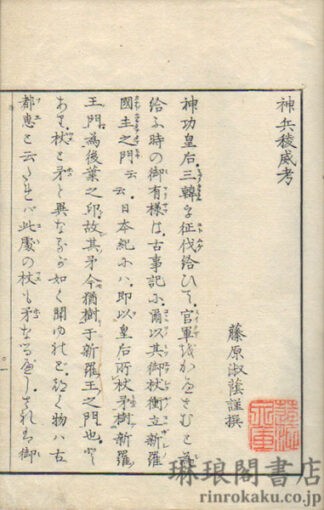 神兵稜威考
藤原淑蔭謹撰
神功皇后三韓を征伐給ひて官軍
給ふ時の御有様は古事記に爾以其御杖衝立新羅
國主之門云云日本紀には即以皇后所杖矛樹新羅
王門為後葉之印故其矛今猶樹于新羅王之門也と
あり杖と矛と異なるが如く聞ゆれど物ハ古
都恵と云此處の杖も矛なるべしされば御
琳琅閣書店
rinrokaku.co.jp